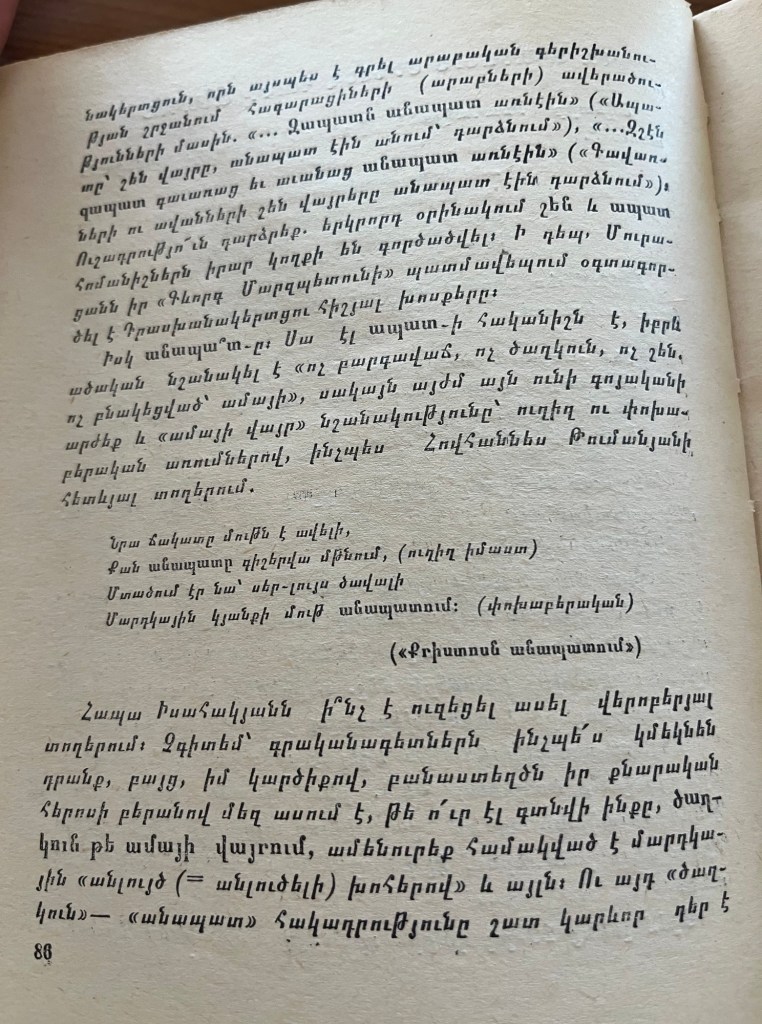 նակերտցուն, որն այսպես է գրել արաբական գերիշխանու-
թյան շրջանում հագարացիների (արաբների) ավերածու-
թյունների մասին. «... Զապատն անապատ առնէին» («Ապա-
տը՝ շեն վայրը, անապատ էին անում՝ դարձնում»), «...Զշէն
զապատ գաւառաց եւ աւանաց անապատ առնէին» («Գավառ-
ների ու ավանների շեն վայրերը անապատ էին դարձնում»)։
Ուշադրությո՛ւն դարձրեք. երկրորդ օրինակում շեն և ապատ
հոմանիշներն իրար կողքի են գործածվել։ Ի դեպ, Մուրա-
ցանն իր «Գևորգ Մարզպետունի» պատմավեպում օգտագոր-
ծել է Դրասխանակերտցու հիշյալ խոսքերը։
Իսկ անապա՞տ-ը։ Սա էլ ապատ-ի հականիշն է, իբրև
ածական նշանակել է «ոչ բարգավաճ, ոչ ծաղկուն, ոչ շեն,
ոչ բնակեցված՝ ամայի», սակայն այժմ այն ունի գոյականի
արժեք և «ամայի վայր» նշանակությունը՝ ուղիղ ու փոխա-
բերական առումներով, ինչպես Հովհաննես Թումանյանի
հետևյալ տողերում.
Նրա ճակատը մութն է ավելի,
Քան անապատը գիշերվա մթնում, (ուղիղ իմաստ)
Մտածում էր նա՝ սեր-լույս ծավալի
Մարդկային կյանքի մութ անապատում։ (փոխաբերական)
(«Քրիստոսն անապատում»)
Հապա Իսահակյանն ի՞նչ է ուզեցել ասել վերոբերյալ
տողերում։ Չգիտեմ՝ գրականագետներն ինչպե՛ս կմեկնեն
դրանք, բայց, իմ կարծիքով, բանաստեղծն իր քնարական
հերոսի բերանով մեզ ասում է, թե ո՛ւր էլ գտնվի ինքը, ծաղ-
կուն թե ամայի վայրում, ամենուրեք համակված է մարդկա-
յին «անլույծ (= անլուծելի) խոհերով» և այլն։ Ու այդ «ծաղ-
կուն»— «անապատ» հակադրությունը շատ կարևոր դեր է
86